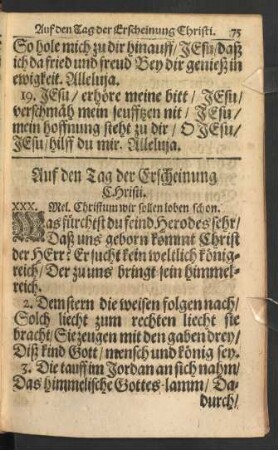 Auf den Tag der Erscheinung Christi. 75
So hole mich zu dir hinauff/ JEsu/ daß
ich da fried und freud Bey dir genieß in
ewigkeit. Alleluja.
19. JEsu/ erhöre meine bitt/ JEsu/
verschmäh mein seufftzen nit/ JEsu/
mein hoffnung steht zu dir/ O JEsu/
JEsu/ hilff du mir. Alleluja.
Auf den Tag der Erscheinung
CHristi.
XXX. Mel. Christum wir sollen loben schon.
Was fürchtst du feind Herodes sehr/
Daß uns geborn kömmt Christ
der HErr? Er sucht kein weltlich König-
reich/ Der zu uns bringt sein himmel-
reich.
2. Dem stern die weisen folgen nach/
Solch liecht zum rechten liecht sie
bracht/ Sie zeugen mit den gaben drey/
Diß kind Gott/ mensch und könig sey.
3. Die tauff im Jordan an sich nahm/
Das himmelische Gottes-lamm/ Da-
durch/